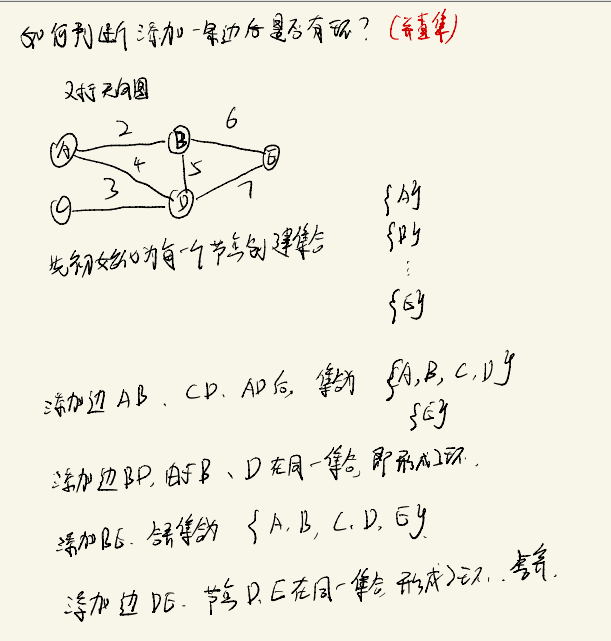 如何判断添加一条边后是否有环？(并查集)
对于无向图
A 2 B 6 E
4 5
C 3 D 7
先初始化为每一个节点创建集合
{A}
{B}
⋮
{E}
添加边 AB、CD、AD后, 集合为 {A, B, C, D}
{E}
添加边BD, 由于B、D在同一集合, 即形成了环.
添加BE. 合并集合为 { A, B, C, D, E}
添加边 DE. 节点D、E在同一集合, 形成了环.、舍弃.